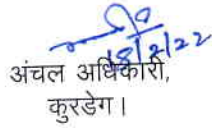 18/2/22
अंचल अधिकारी,
कुरडेग।